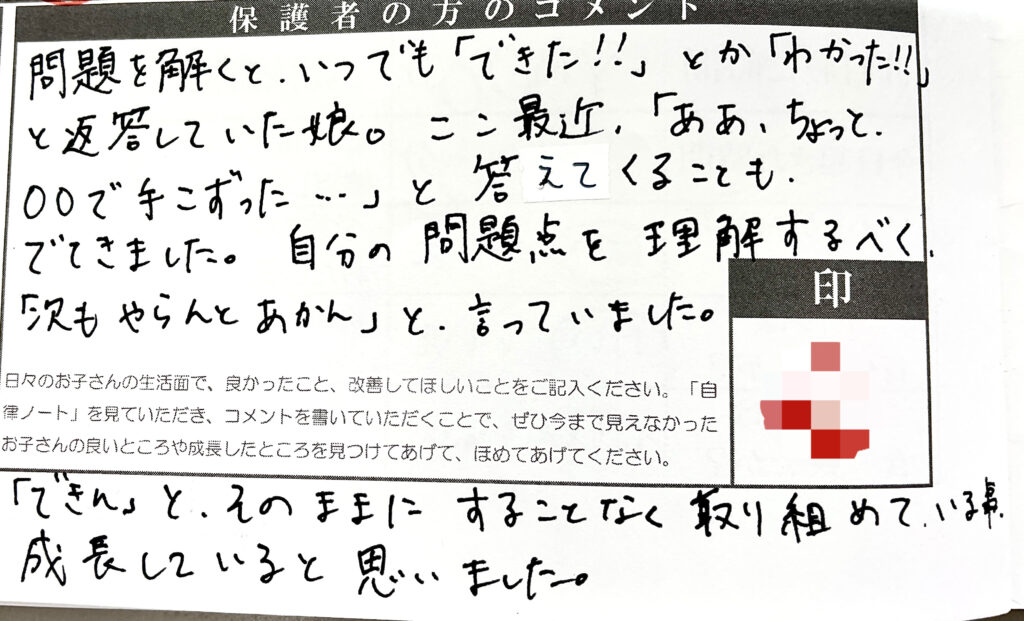 保護者の方のコメント
問題を解くと、いつでも「できた!!」とか「わかった!!」
と返答していた娘。ここ最近、「ああ、ちょっと、
〇〇で手こずった…」と答えてくることも、
でてきました。自分の問題点を理解するべく、
「次もやらんとあかん」と、言っていました。
印
日々のお子さんの生活面で、良かったこと、改善してほしいことをご記入ください。「自
律ノート」を見ていただき、コメントを書いていただくことで、ぜひ今まで見えなかった
お子さんの良いところや成長したところを見つけてあげて、ほめてあげてください。
「できん」と、そのままにすることなく取り組めている事、
成長していると思いました。